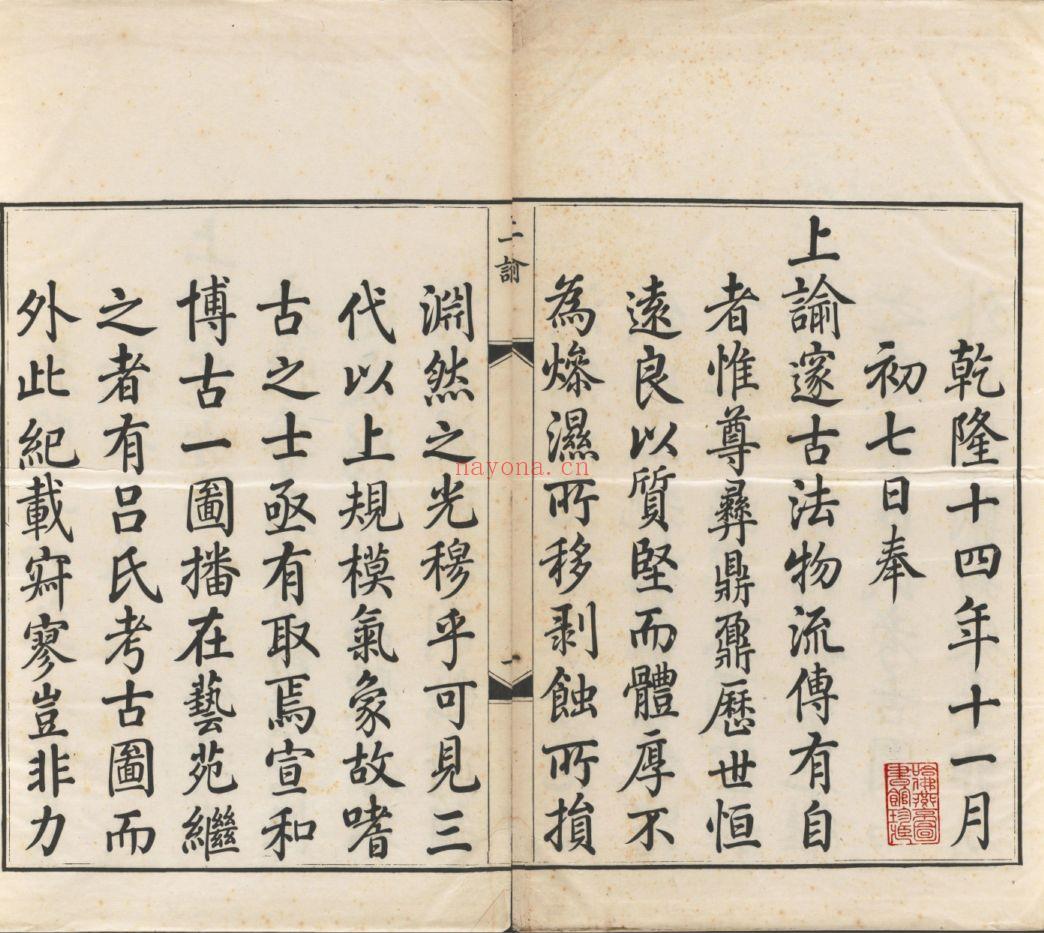 乾隆十四年十一月
初七日奉
上諭邃古法物流傳有自
者惟尊彝鼎鼐歷世恒
遠良以質堅而體厚不
為燥濕所移剥蝕所損
上諭
一
淵然之光穆乎可見三
代以上規模氣象故嗜
古之士亟有取焉宣和
博古一圖播在藝苑繼
之者有呂氏考古圖而
外此紀載寂寥豈非力
哈佛燕京圖書館珍藏
nayona.cn